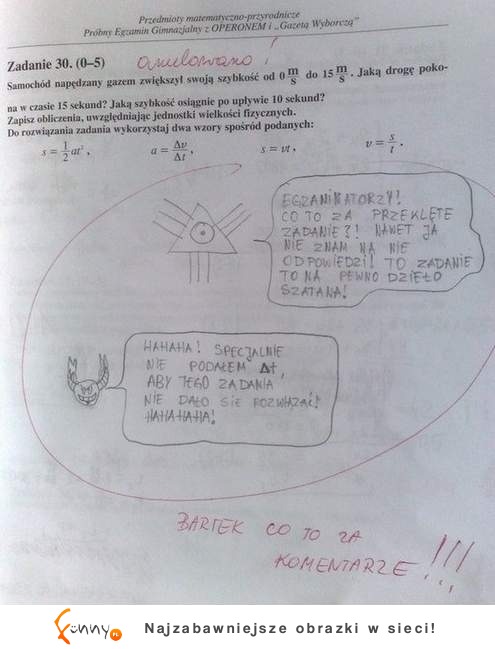 Przedmioty matematyczno-przyrodnicze
Próbny Egzamin Gimnazjalny z OPERONEM i „Gazetą Wyborczą”
Zadanie 30. (0–5) anulowano!
Samochód napędzany gazem zwiększył swoją szybkość od 0 m/s do 15 m/s. Jaką drogę poko-
na w czasie 15 sekund? Jaką szybkość osiągnie po upływie 10 sekund?
Zapisz obliczenia, uwzględniając jednostki wielkości fizycznych.
Do rozwiązania zadania wykorzystaj dwa wzory spośród podanych:
s = 1/2 at², a = Δv/Δt, s = vt, v = s/t.
EGZAMINATORZY!
CO TO ZA PRZEKLĘTE
ZADANIE?! NAWET JA
NIE ZNAM NA NIE
ODPOWIEDZI! TO ZADANIE
TO NA PEWNO DZIEŁO
SZATANA!
HAHAHA! SPECJALNIE
NIE PODAŁEM Δt,
ABY TEGO ZADANIA
NIE DAŁO SIĘ ROZWIĄZAĆ!
HAHAHAHA!
BARTEK CO TO ZA
KOMENTARZE!!!
fonny.pl
Najzabawniejsze obrazki w sieci!